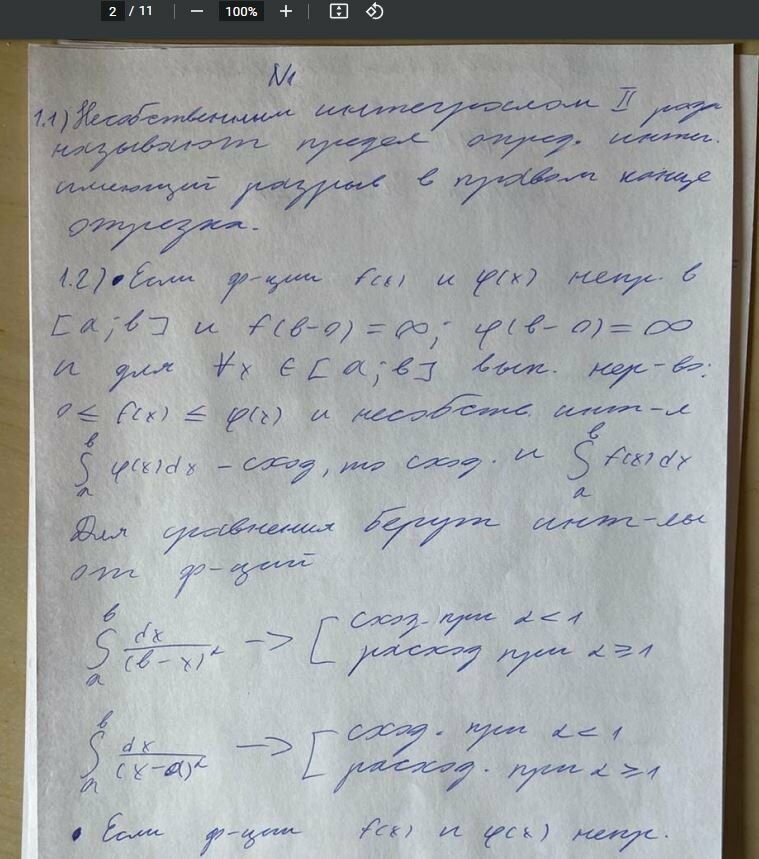 2 / 11 — 100% +
N1
1.1) Несобственным интегралом II рода
называют предел опред. интег.
имеющий разрыв в правом конце
отрезка.
1.2) • Если ф-ции f(x) и φ(x) непр. в
[a;b] и f(b-0) = ∞; φ(b-0) = ∞
и для ∀x ∈ [a;b] вып. нер-во:
0 ≤ f(x) ≤ φ(x) и несобств. инт-л
∫ₐᵇ φ(x)dx - сход, то сход. и ∫ₐᵇ f(x)dx
Для сравнения берут инт-лы
от ф-ций
∫ₐᵇ dx/(b-x)^α -> [ сход. при α<1
расход при α≥1
∫ₐᵇ dx/(x-a)^α -> [ сход. при α<1
расход. при α≥1
• Если ф-ции f(x) и φ(x) непр.